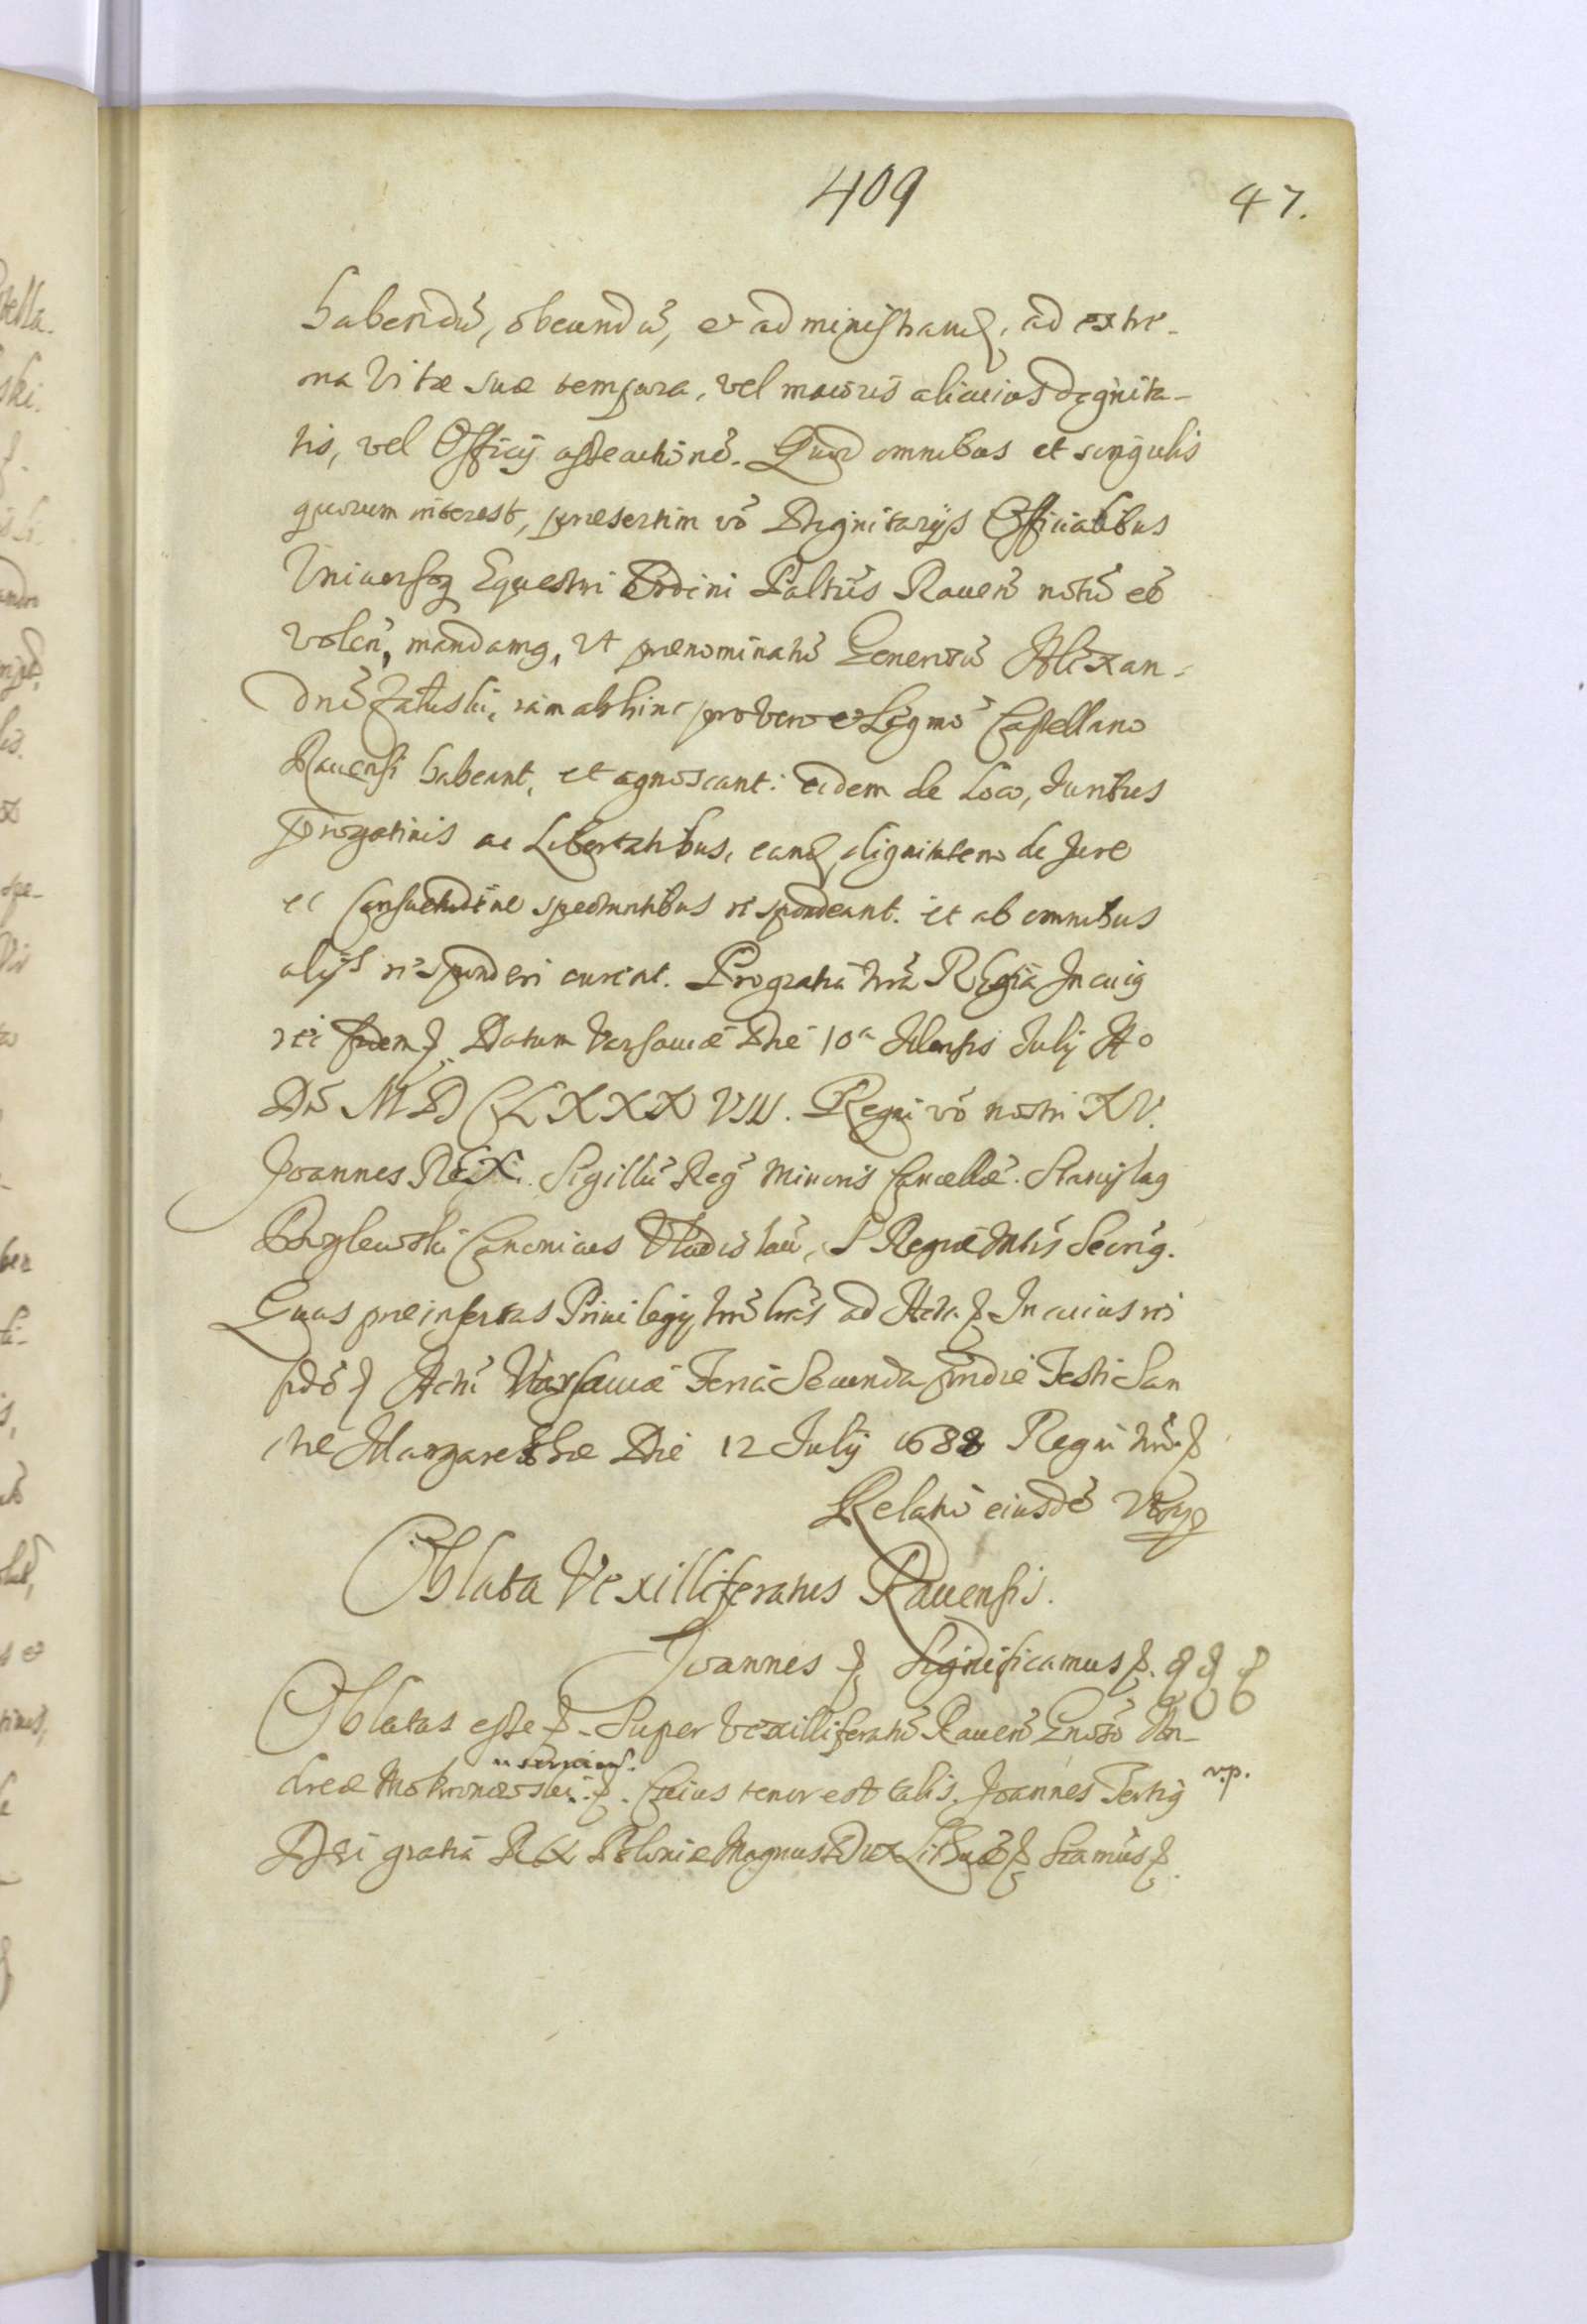 409 47.
habendũ, obeundũ, et administrandq, ad extre-
ma Vitæ suæ tempora, vel maioris alicuius dignita-
tis, vel Officij assecutionẽ. Quod omnibus et singulis
quorum interest, præsertim võ Dignitarijs Officialibus
Uniuersoq Equestri Ordini Paltũs Rauen̄ notũ eẽ
Volen̄, mandamq, Ut prænominatũ Generosũ Alexan-
drũ Załuski, iam abhinc pro vero et Legmõ Castellano
Rauensi habeant, et agnoscant: eidem de Loco, Juribus
Prrogatiuis ac Libertatibus, eandq dignitatem de Jure
et Consuetudine spectantibus respondeant. et ab omnibus
alijs responderi curent. Pro gratia nrã Regia In cuiq
rei fidem. Datum Varsauiæ Die 10a Mensis Julij Ao
Dñi MDCLXXXVIII. Regni võ nostri XV.
Joannes REX. Sigillũ Reg̃ Minoris Cancellæ. Stanislaq
Canonicus Vladislau̅, S Regiæ Mtis Secrñg.
Quas præinsertas Privilegij nrĩ lrãs ad Acta In cuius rei
fidẽ Actũ Varsauiæ Feria Secunda pridie Festi San
ctæ Margarethæ Die 12 Julij 1688 Regni nrĩ
Relatio eiusdẽ
Oblata Vexilliferatus Rauensis.
Joannes Significamus
Oblatas esse Super Vexilliferatũ Rauen̄ Gnosõ An-
dreæ Mokronowski Cuius tenor est talis. Joannes Tertiq v.p.
Dei gratia Rex Poloniæ Magnus Dux Lithuæ Scamũs